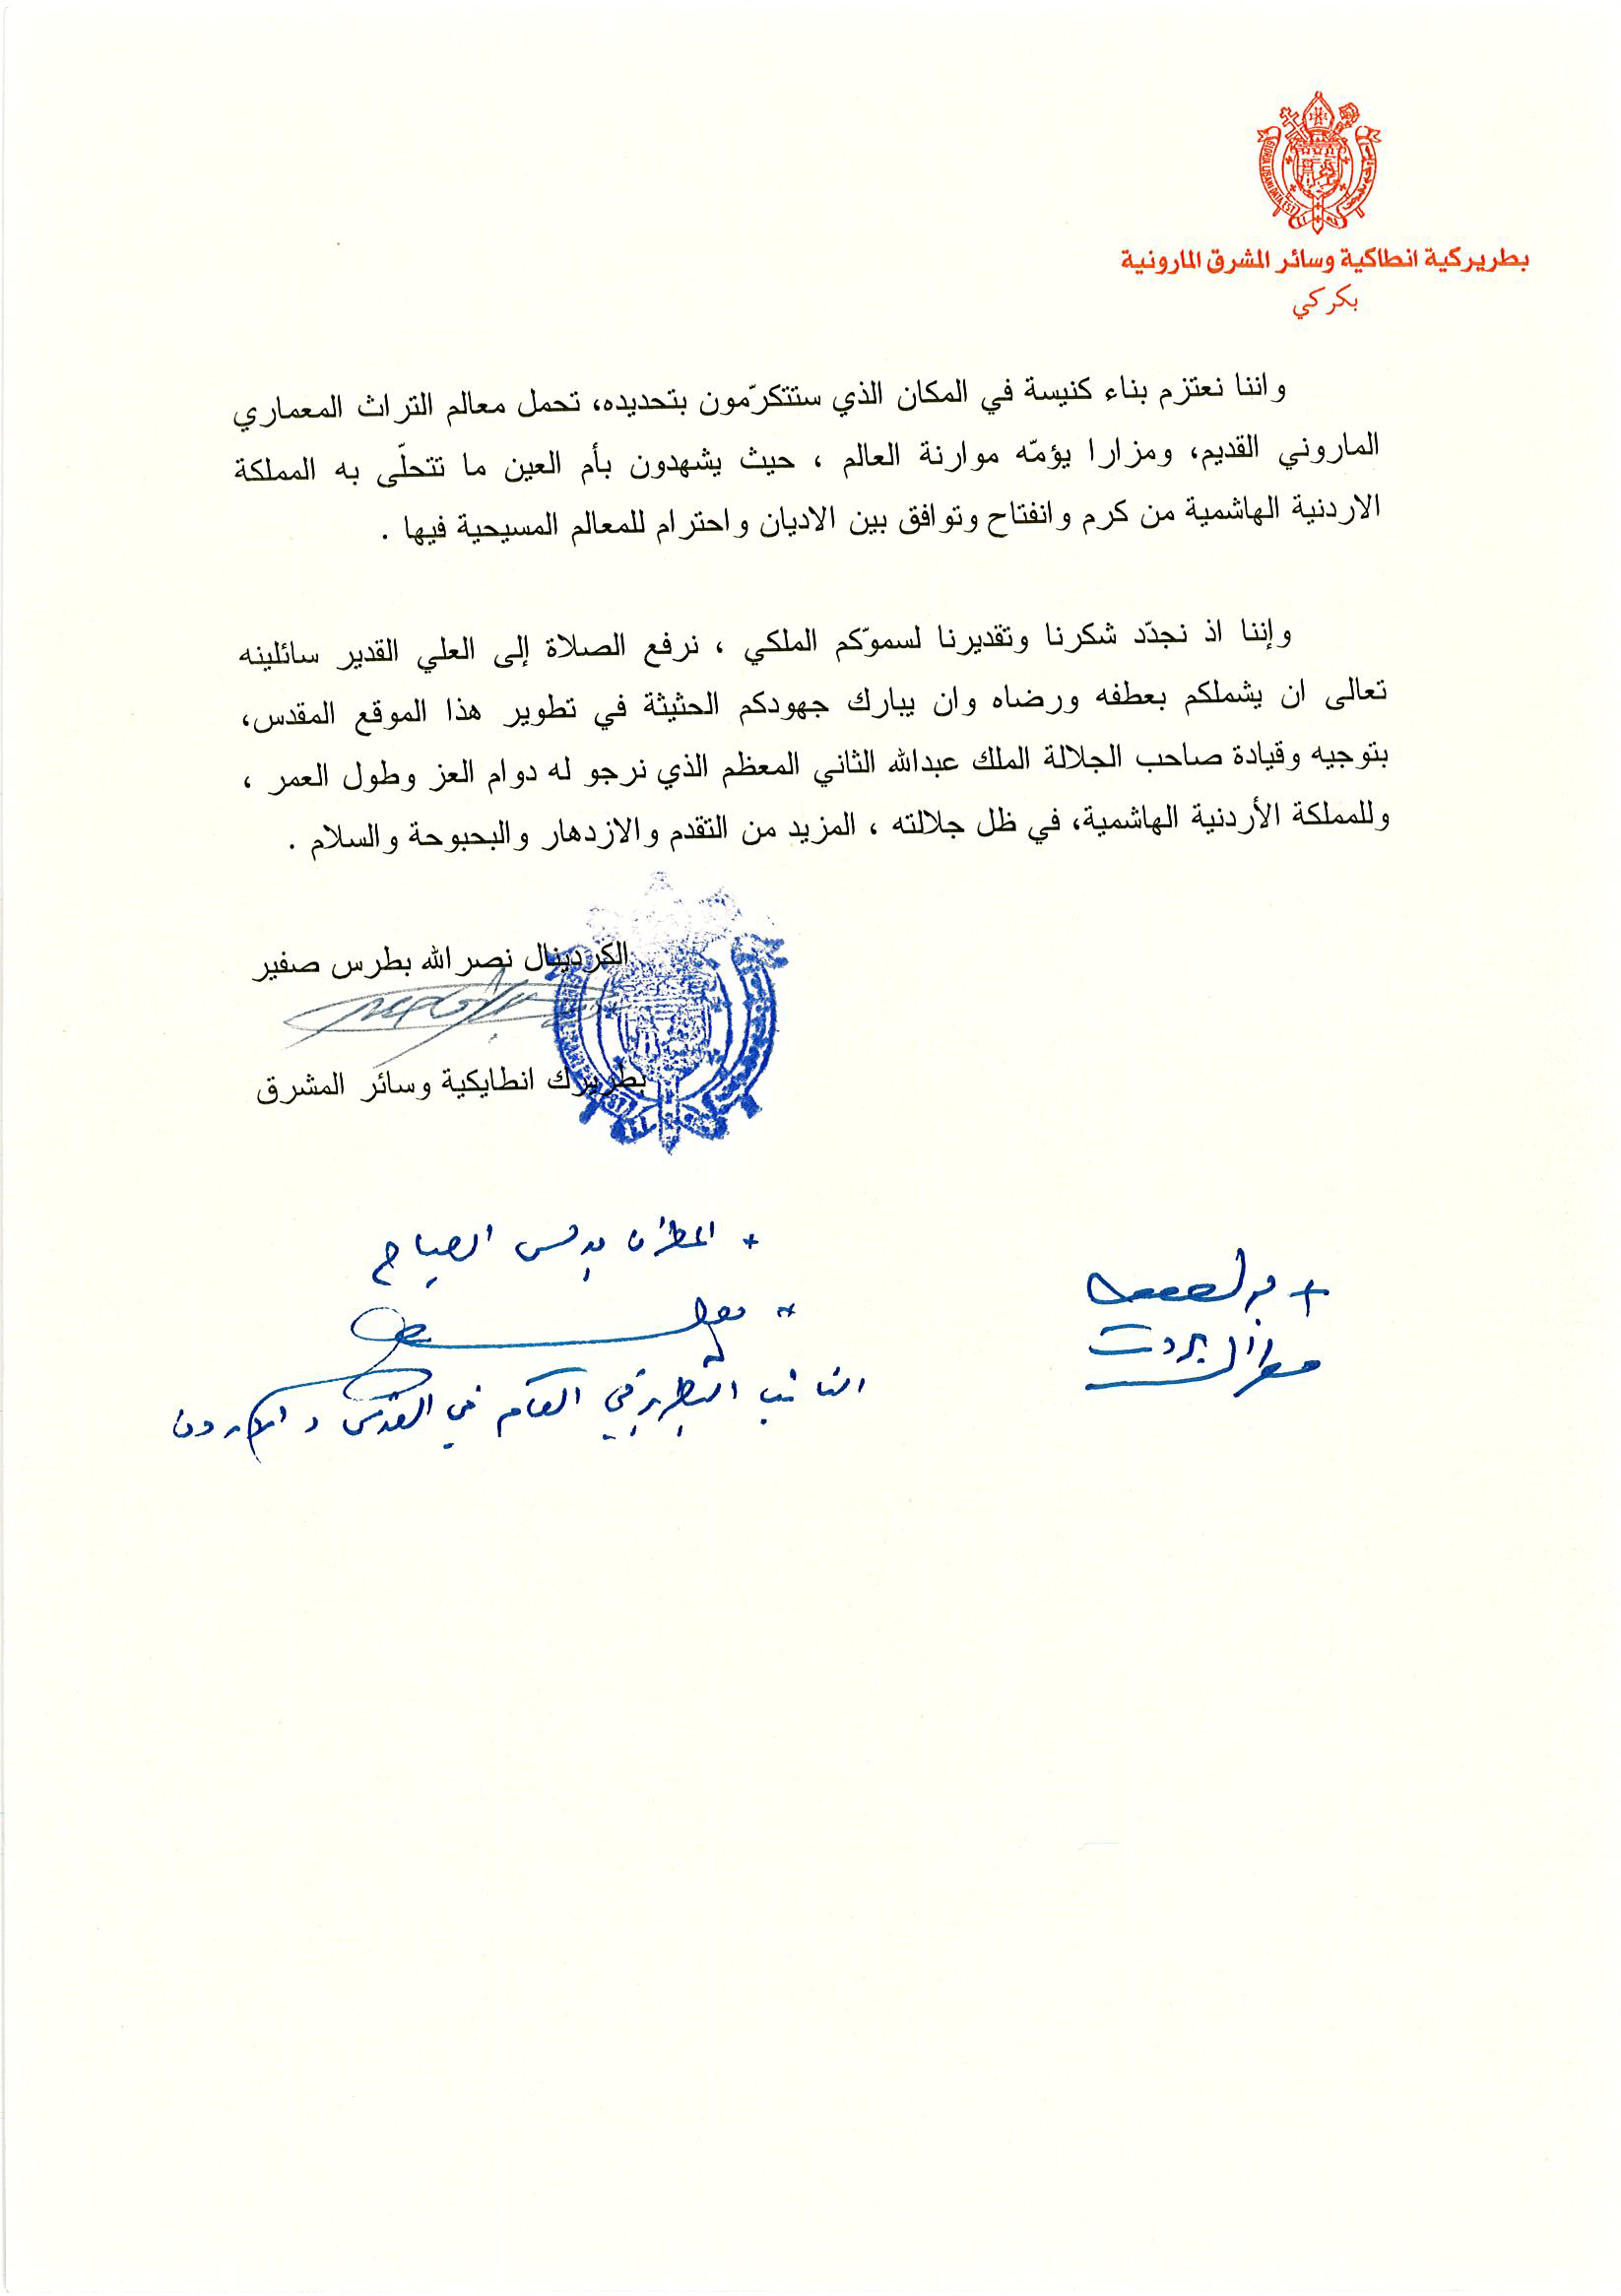 بطريركية انطاكية وسائر المشرق المارونية
بكركي
واننا نعتزم بناء كنيسة في المكان الذي ستتكرّمون بتحديده، تحمل معالم التراث المعماري
الماروني القديم، ومزارا يؤمّه موارنة العالم ، حيث يشهدون بأم العين ما تتحلّى به المملكة
الاردنية الهاشمية من كرم وانفتاح وتوافق بين الاديان واحترام للمعالم المسيحية فيها .
وإننا اذ نجدّد شكرنا وتقديرنا لسموّكم الملكي ، نرفع الصلاة إلى العلي القدير سائلينه
تعالى ان يشملكم بعطفه ورضاه وان يبارك جهودكم الحثيثة في تطوير هذا الموقع المقدس،
بتوجيه وقيادة صاحب الجلالة الملك عبدالله الثاني المعظم الذي نرجو له دوام العز وطول العمر ،
وللمملكة الأردنية الهاشمية، في ظل جلالته ، المزيد من التقدم والازدهار والبحبوحة والسلام .
الكردينال نصرالله بطرس صفير
بطريرك انطايكية وسائر المشرق
+ المطران بولس الصياح
النائب البطريركي العام في القدس والاردن
+ بولس
مطران بيروت
GLORIA LIBANI DATA EST EI